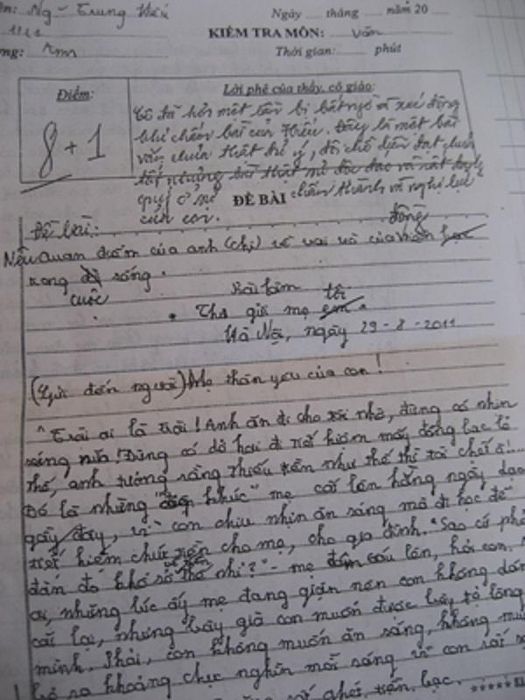 Ng - Trung Hiếu
Ngày ... tháng ... năm 20
KIỂM TRA MÔN: Văn
Thời gian: ... phút
Điểm:
Lời phê của thầy, cô giáo:
8 + 1
Cô đã hơn một lần bị bất ngờ và xúc động
khi chấm bài của Hiếu. Đây là một bài
văn chưa thật đủ ý, đôi chỗ diễn đạt chưa
tốt nhưng
quý ở sự chân thành và nghị lực
của con.
ĐỀ BÀI
Đề bài:
Nêu quan điểm của anh (chị) về vai trò của đồng
trong cuộc sống.
Bài làm
Thư gửi mẹ tôi
Hà Nội, ngày 29-8-2011
(Gửi đến người) Mẹ thân yêu của con!
"Trời ơi là trời! Anh ăn đi cho tôi nhờ, đừng có nhịn
sáng nữa! Đừng có dở hơi đi tiết kiệm mấy đồng bạc lẻ
thế, anh tưởng rằng thiếu tiền như thế thì tôi chết à!...
Đó là những "điệp khúc" mẹ cất lên hằng ngày dạo
gần đây, vì con chịu nhịn ăn sáng mà đi học để
tiết kiệm chút tiền cho mẹ, cho gia đình. "Sao cứ phải
đần độ khổ sở thế nhỉ?" - mẹ cáu lên, hỏi con.
ai, những lúc ấy mẹ đang giận nên con không dám
cãi lại, nhưng bây giờ con muốn được bày tỏ lòng
mình. Phải, con không muốn ăn sáng, không muốn
bỏ ra khoảng chục nghìn mỗi sáng vì con